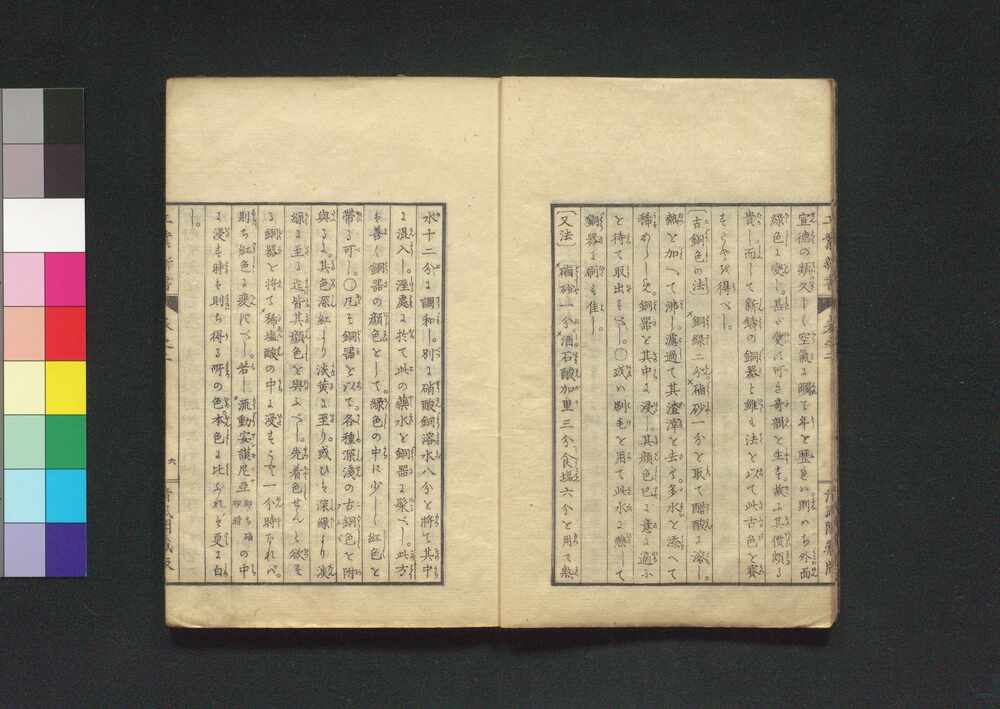 宣德の類久しく空氣に觸て年を歷されハ則ち外面
綠色に變し。甚た愛す可き奇觀を生す。故に其價頗る
貴し。而して新鑄の銅器と雖も法を以て此古色を賽
得べし。
〔古銅色の法〕 銅綠二分硇砂一分を取て醋酸に溶し。
熱を加へて沸し。濾過して其渣滓を去り。多水を添へて
稀めしめ。銅器を其中に浸し。其顏色已に意に適ふ
を待て取出すべし。〇或ハ刷毛を用て此水に蘸して
銅器に刷も佳し。
〔又法〕 硇砂一分酒石酸加里三分。食塩六分を用て熱
水十二分に調和し。別に硝酸銅溶水八分を將て其中
に混入し。溼處に於て此の藥水を銅器に染べし。此方
も善く銅器の顏色をして。綠色の中に少しく紅色を
帶る可し。〇凡そ銅器を以て各種深淺の古銅色を附
與るに。其色深紅より淡黄に至り。或ひは深綠より淡
綠に至る迄皆其顏色を與ふべし。先着色せんと欲す
る銅器を將て稀塩酸の中に浸す。一分時なれバ。
則ち紅色に變ずべし。若し流動安謨尼亞の中
に浸す時も則ち得る所の色本色に比すれバ更に白
し。
六